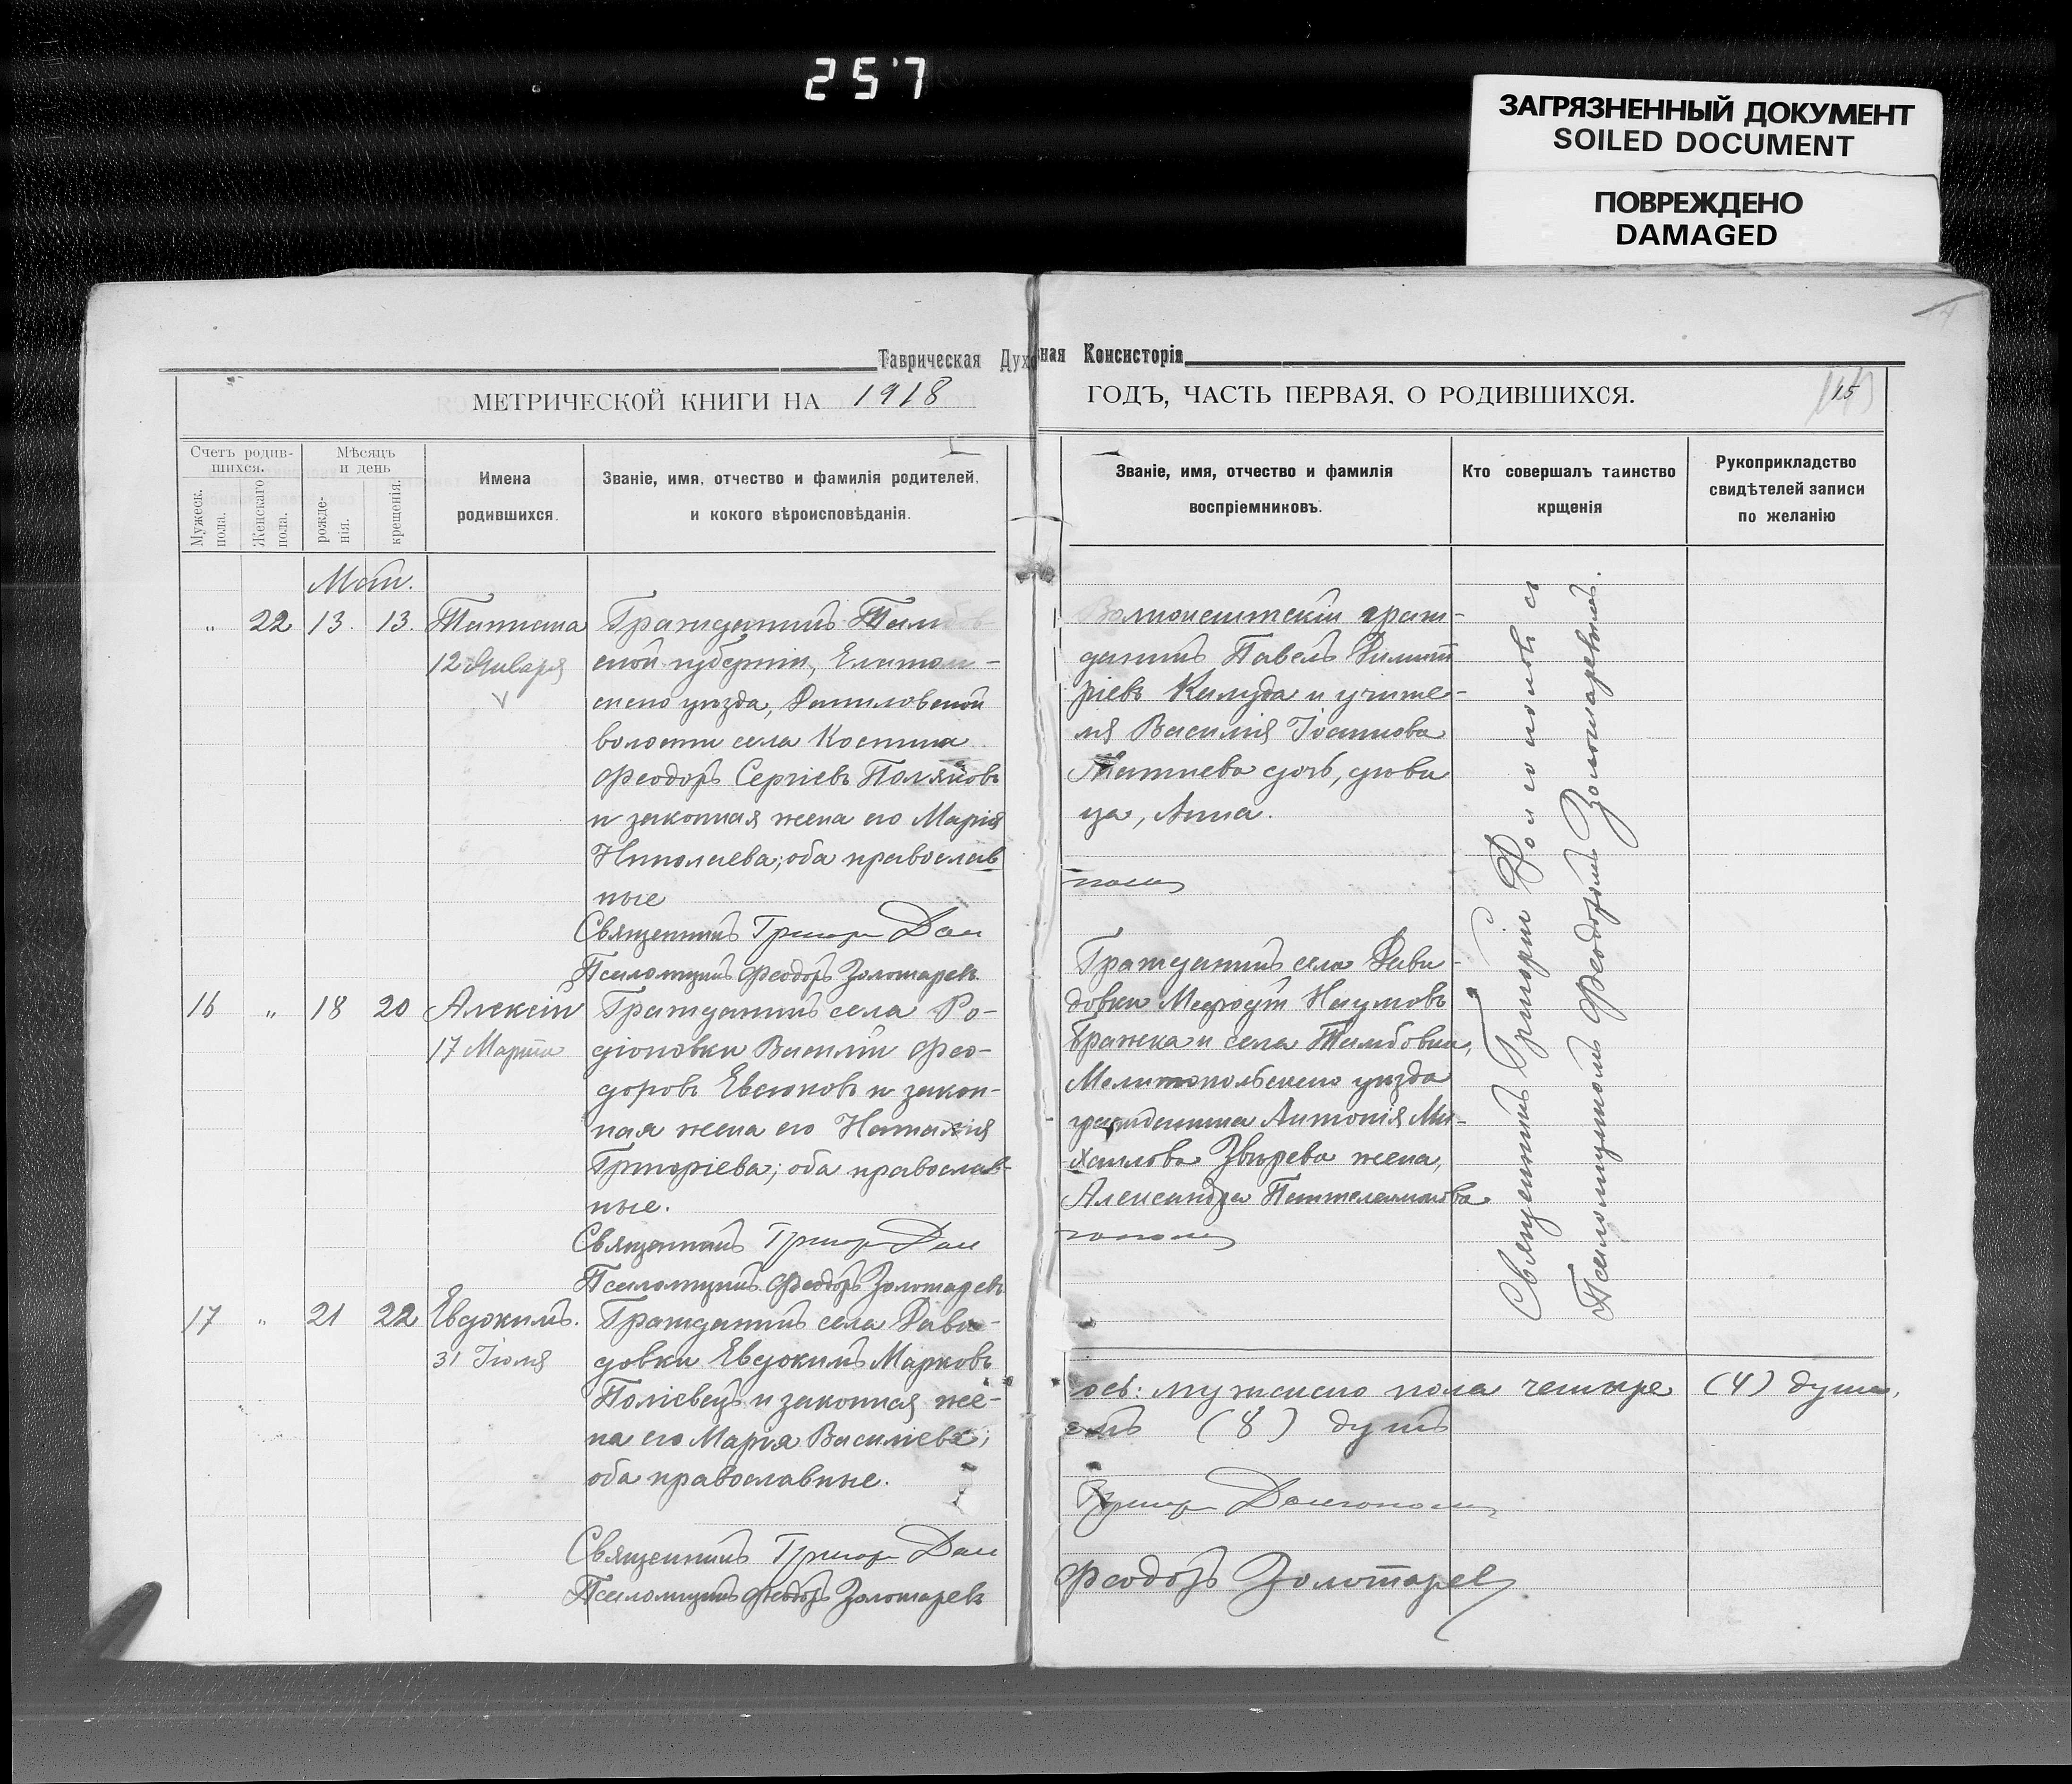 257
ЗАГРЯЗНЕННЫЙ ДОКУМЕНТ
SOILED DOCUMENT
ПОВРЕЖДЕНО
DAMAGED
Таврическая Духовная Консисторія
МЕТРИЧЕСКОЙ КНИГИ НА 1918
ГОДЪ, ЧАСТЬ ПЕРВАЯ, О РОДИВШИХСЯ.
15
Счетъ родив-
шихся.
Мужеск.
пола.
Женскаго
пола.
Мѣсяцъ
и день
рожде-
нія.
крещенія.
Имена
родившихся.
Званіе, имя, отчество и фамилія родителей,
и кокого вѣроисповѣданія.
Званіе, имя, отчество и фамилія
воспріемниковъ.
Кто совершалъ таинство
крщенія
Рукоприкладство
свидѣтелей записи
по желанію
Май.
" 22 13. 13. Татіана
12 Января
Гражданинъ Тамбов
ской губерніи, Елатом-
скаго уѣзда, Даниловской
волости села Костина
Феодоръ Сергіевъ Поляковъ
и законная жена его Марія
Николаева; оба православ
ные
Священникъ Григор Дол
Псаломщикъ Феодоръ Золотаревъ
гражданинъ Павелъ Димит
ріевъ и учите-
ля Василія Іоаннова
дочь, дѣви
ца, Анна.
16 " 18 20 Алексій
17 Марта
Гражданинъ села Ро-
діоновки Василій Фео-
доровъ Евсюковъ и закон-
ная жена его Наталія
Григоріева; оба православ-
ные.
Священникъ Григор Дол
Псаломщикъ Феодоръ Золотаревъ
Гражданинъ села Дави-
довки Меѳодій Наумовъ
Бражка и села Тамбовки,
Мелитопольскаго уѣзда
гражданина Антонія Ми-
хаилова Звѣрева жена,
Александра Пантелеимонова.
17 " 21 22 Евдокимъ.
31 Іюля
Гражданинъ села Дави-
довки Евдокимъ Марковъ
и законная же-
на его Марія Василіева;
оба православные.
Священникъ Григор Дол
Псаломщикъ Феодоръ Золотаревъ
Священникъ Григорій
Псаломщикомъ Феодоромъ Золотаревымъ.
ось: мужскаго пола четыре (4) души,
(8) душъ
Григор
Феодоръ Золотарев